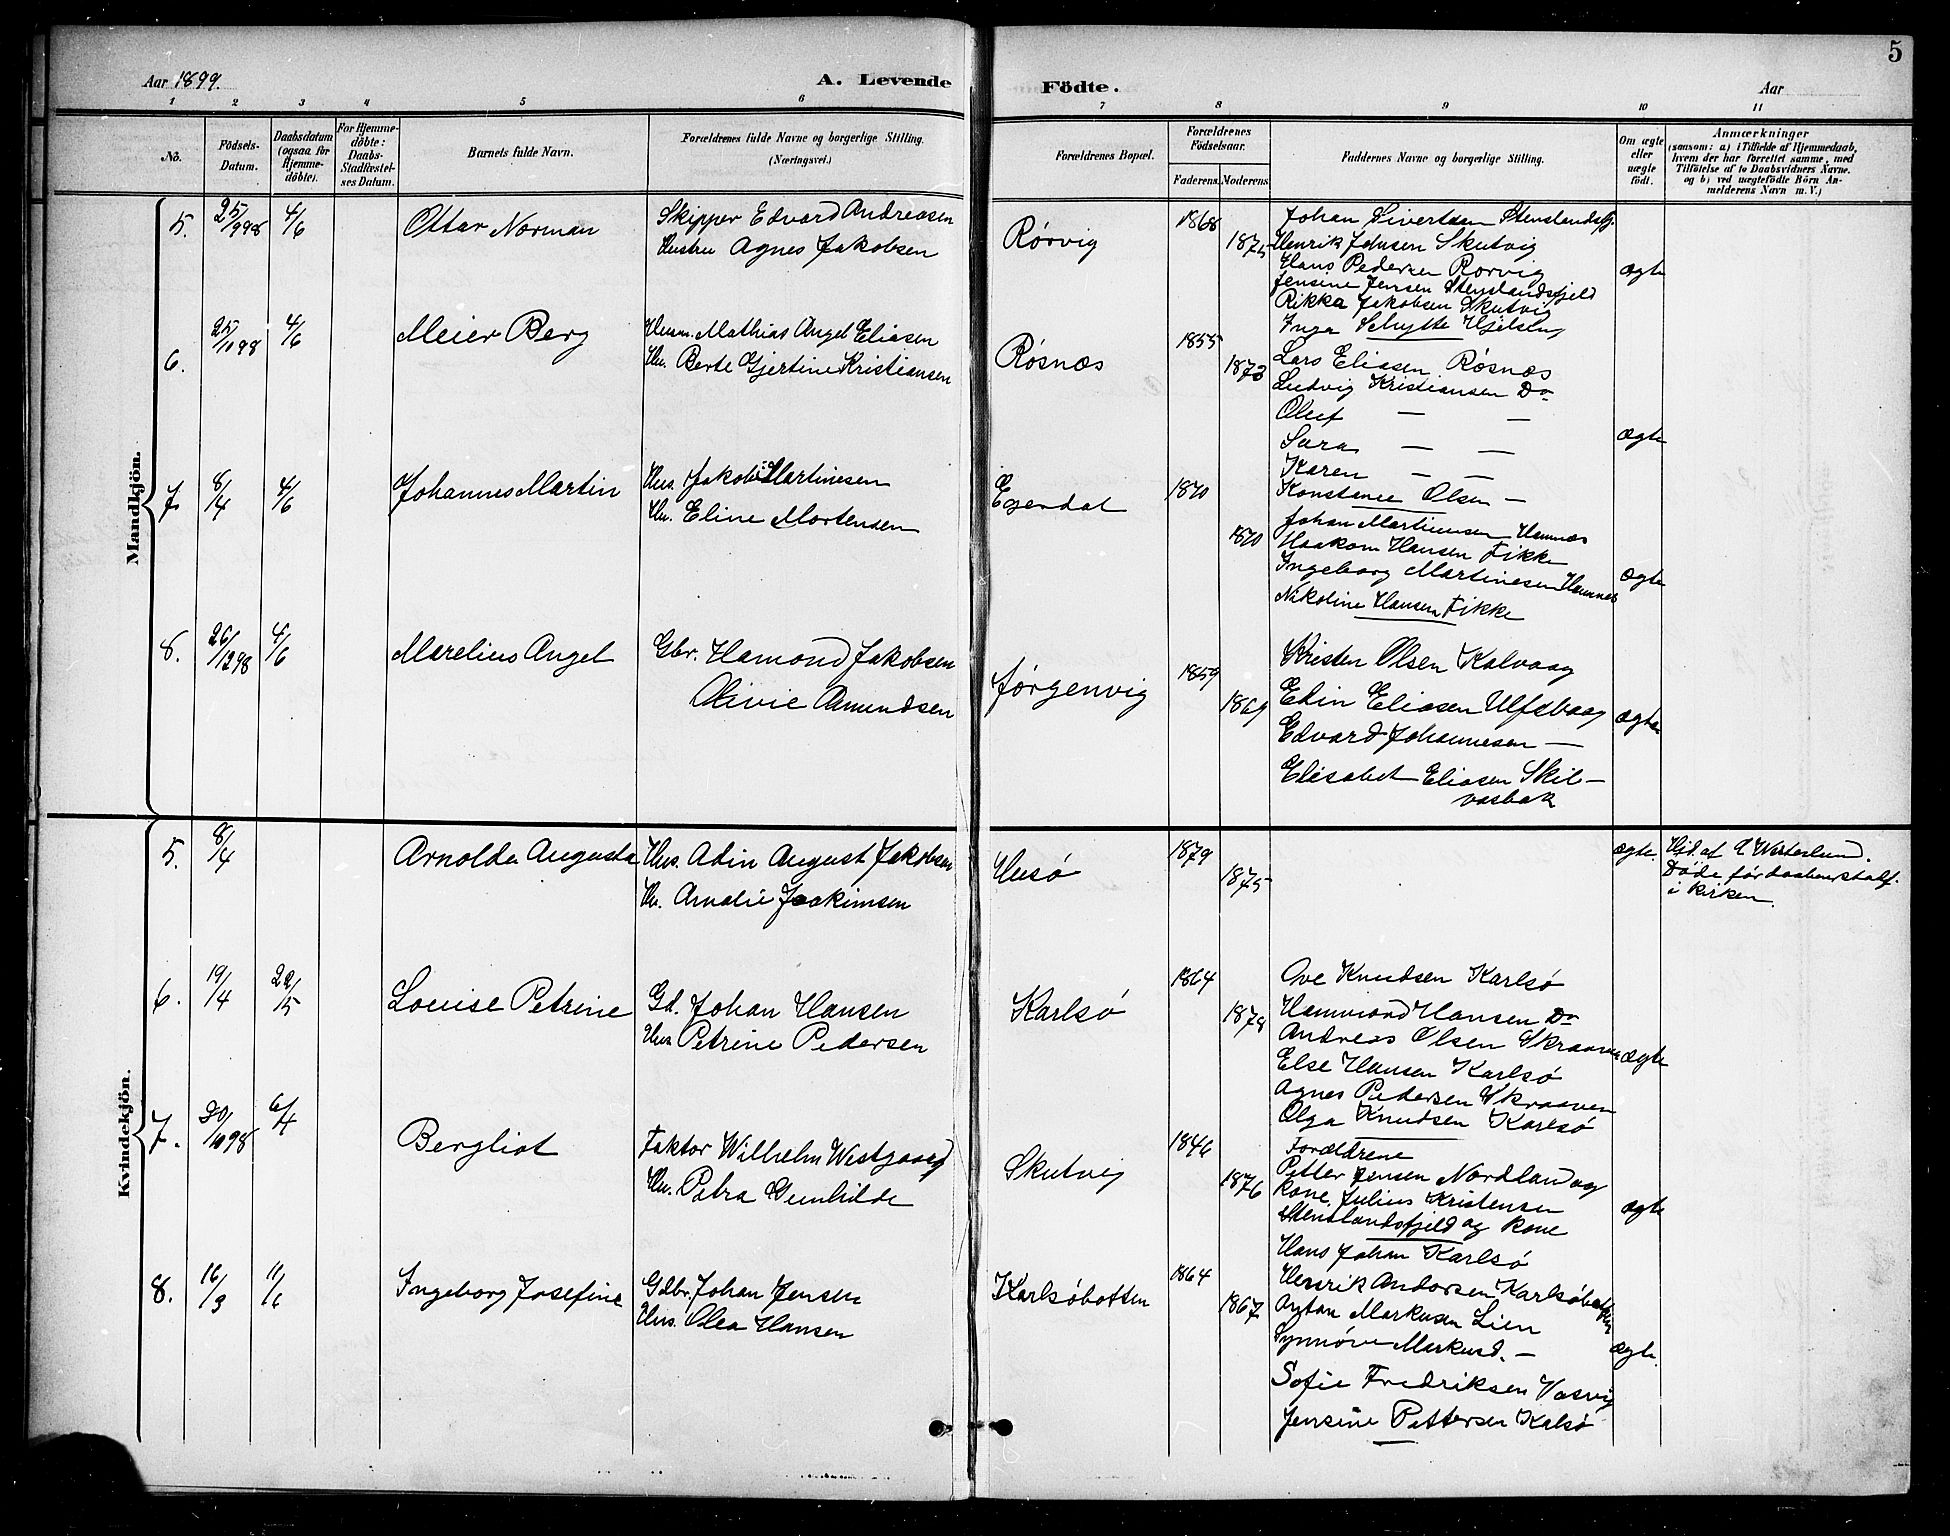 5
Aar 1899.
A. Levende Födte.
Aar
1 2 3 4 5 6 7 8 9 10 11
No.
Födsels-Datum.
Daabsdatum (ogsaa for Hjemme-döbte).
For Hjemme-döbte: Daabs-Stadfæstel-ses Datum.
Barnets fulde Navn.
Forældrenes fulde Navne og borgerlige Stilling. (Næringsvei.)
Forældrenes Bopæl.
Forældrenes Födselsaar.
Faderens. Moderens.
Faddernes Navne og borgerlige Stilling.
Om ægte eller uægte født.
Anmærkninger
(saasom: a) i Tilfælde af Hjemmedaab,
hvem der har forrettet samme, med
Tilföielse af to Daabsvidners Navne.
og b) ved uægtefödte Börn An-
melderens Navn m. V.)
Mandkjön.
5. 25/9 98 4/6 Ottar Norman
Skipper Edvard Andreasen
Hustru Agnes Jakobsen
Rørvig 1868 1875
Johan Sivertsen Stenslandsfj.
Henrik Johnsen Skutvig
Hans Pedersen Rørvig
Jensine Jensen Stenslandsfjeld
Rikka Jakobsen Skutvig
Inga Schytte
ægte
6. 25/10 98 4/6 Meier Berg
Husm. Mathias Angel Eliasen
Hu. Berte Gjertine Kristiansen
Røsnæs 1855 1873
Lars Eliasen Røsnæs
Ludvig Kristiansen Do
Oluf — —
Sara — —
Karen — —
Konstance Olsen —
ægte
7. 8/4 4/6 Johannes Martin
Hus. Jakob Martinesen
Hu. Eline Mortensen
Egendal 1870 1870
Johan Martinesen Hamnæs
Haakon Hansen Fikke
Ingeborg Martinesen Hamnæs
Nikoline Hansen Fikke
ægte
8. 26/12 98 4/6 Marelius Angel
Gbr. Hamond Jakobsen
Olivie Amundsen
Jørgenvig 1859 1869
Kristen Olsen Kalvaag
Edin Eliasen Ulfsvaag
Edvard Johannesen —
Elisabet Eliasen Skil-
vasbak
ægte
Kvindekjön.
5. 8/4 Arnolda Augusta
Hus. Adin August Jakobsen
Hu. Amalie Joakimsen
Husø 1879 1875
ægte. Hjd. af A Westerlund.
Døde før daabens stadf.
i kirken.
6. 19/4 22/5 Louise Petrine
Gd. Johan Hansen
Hus Petrine Pedersen
Karlsø 1864 1878
Ove Knudsen Karlsø
Hammond Hansen Do
Andreas Olsen Skraaven
Else Hansen Karlsø
Agnes Pedersen Skraaven
Olga Knudsen Karlsø
ægte
7. 30/10 98 6/4 Bergliot
Faktor Wilhelm Westgaard
Hu. Petra Gunhilde
Skutvig 1846 1876
Forældrene
Petter Jensen Nordland og
kone, Julius Kristensen
Stenslandsfjeld og kone
ægte
8. 16/3 11/6 Ingeborg Josefine
Gdbr. Johan Jensen
Hus. Olea Hansen
Karlsøbotten 1864 1867
Hans Johan Karlsø
Henrik Andersen Karlsøbotten
Anton Markusen Lien
Synnøve Markusd. —
Sofie Fredriksen Vasvig
Jensine Pettersen Kalsø
ægte.